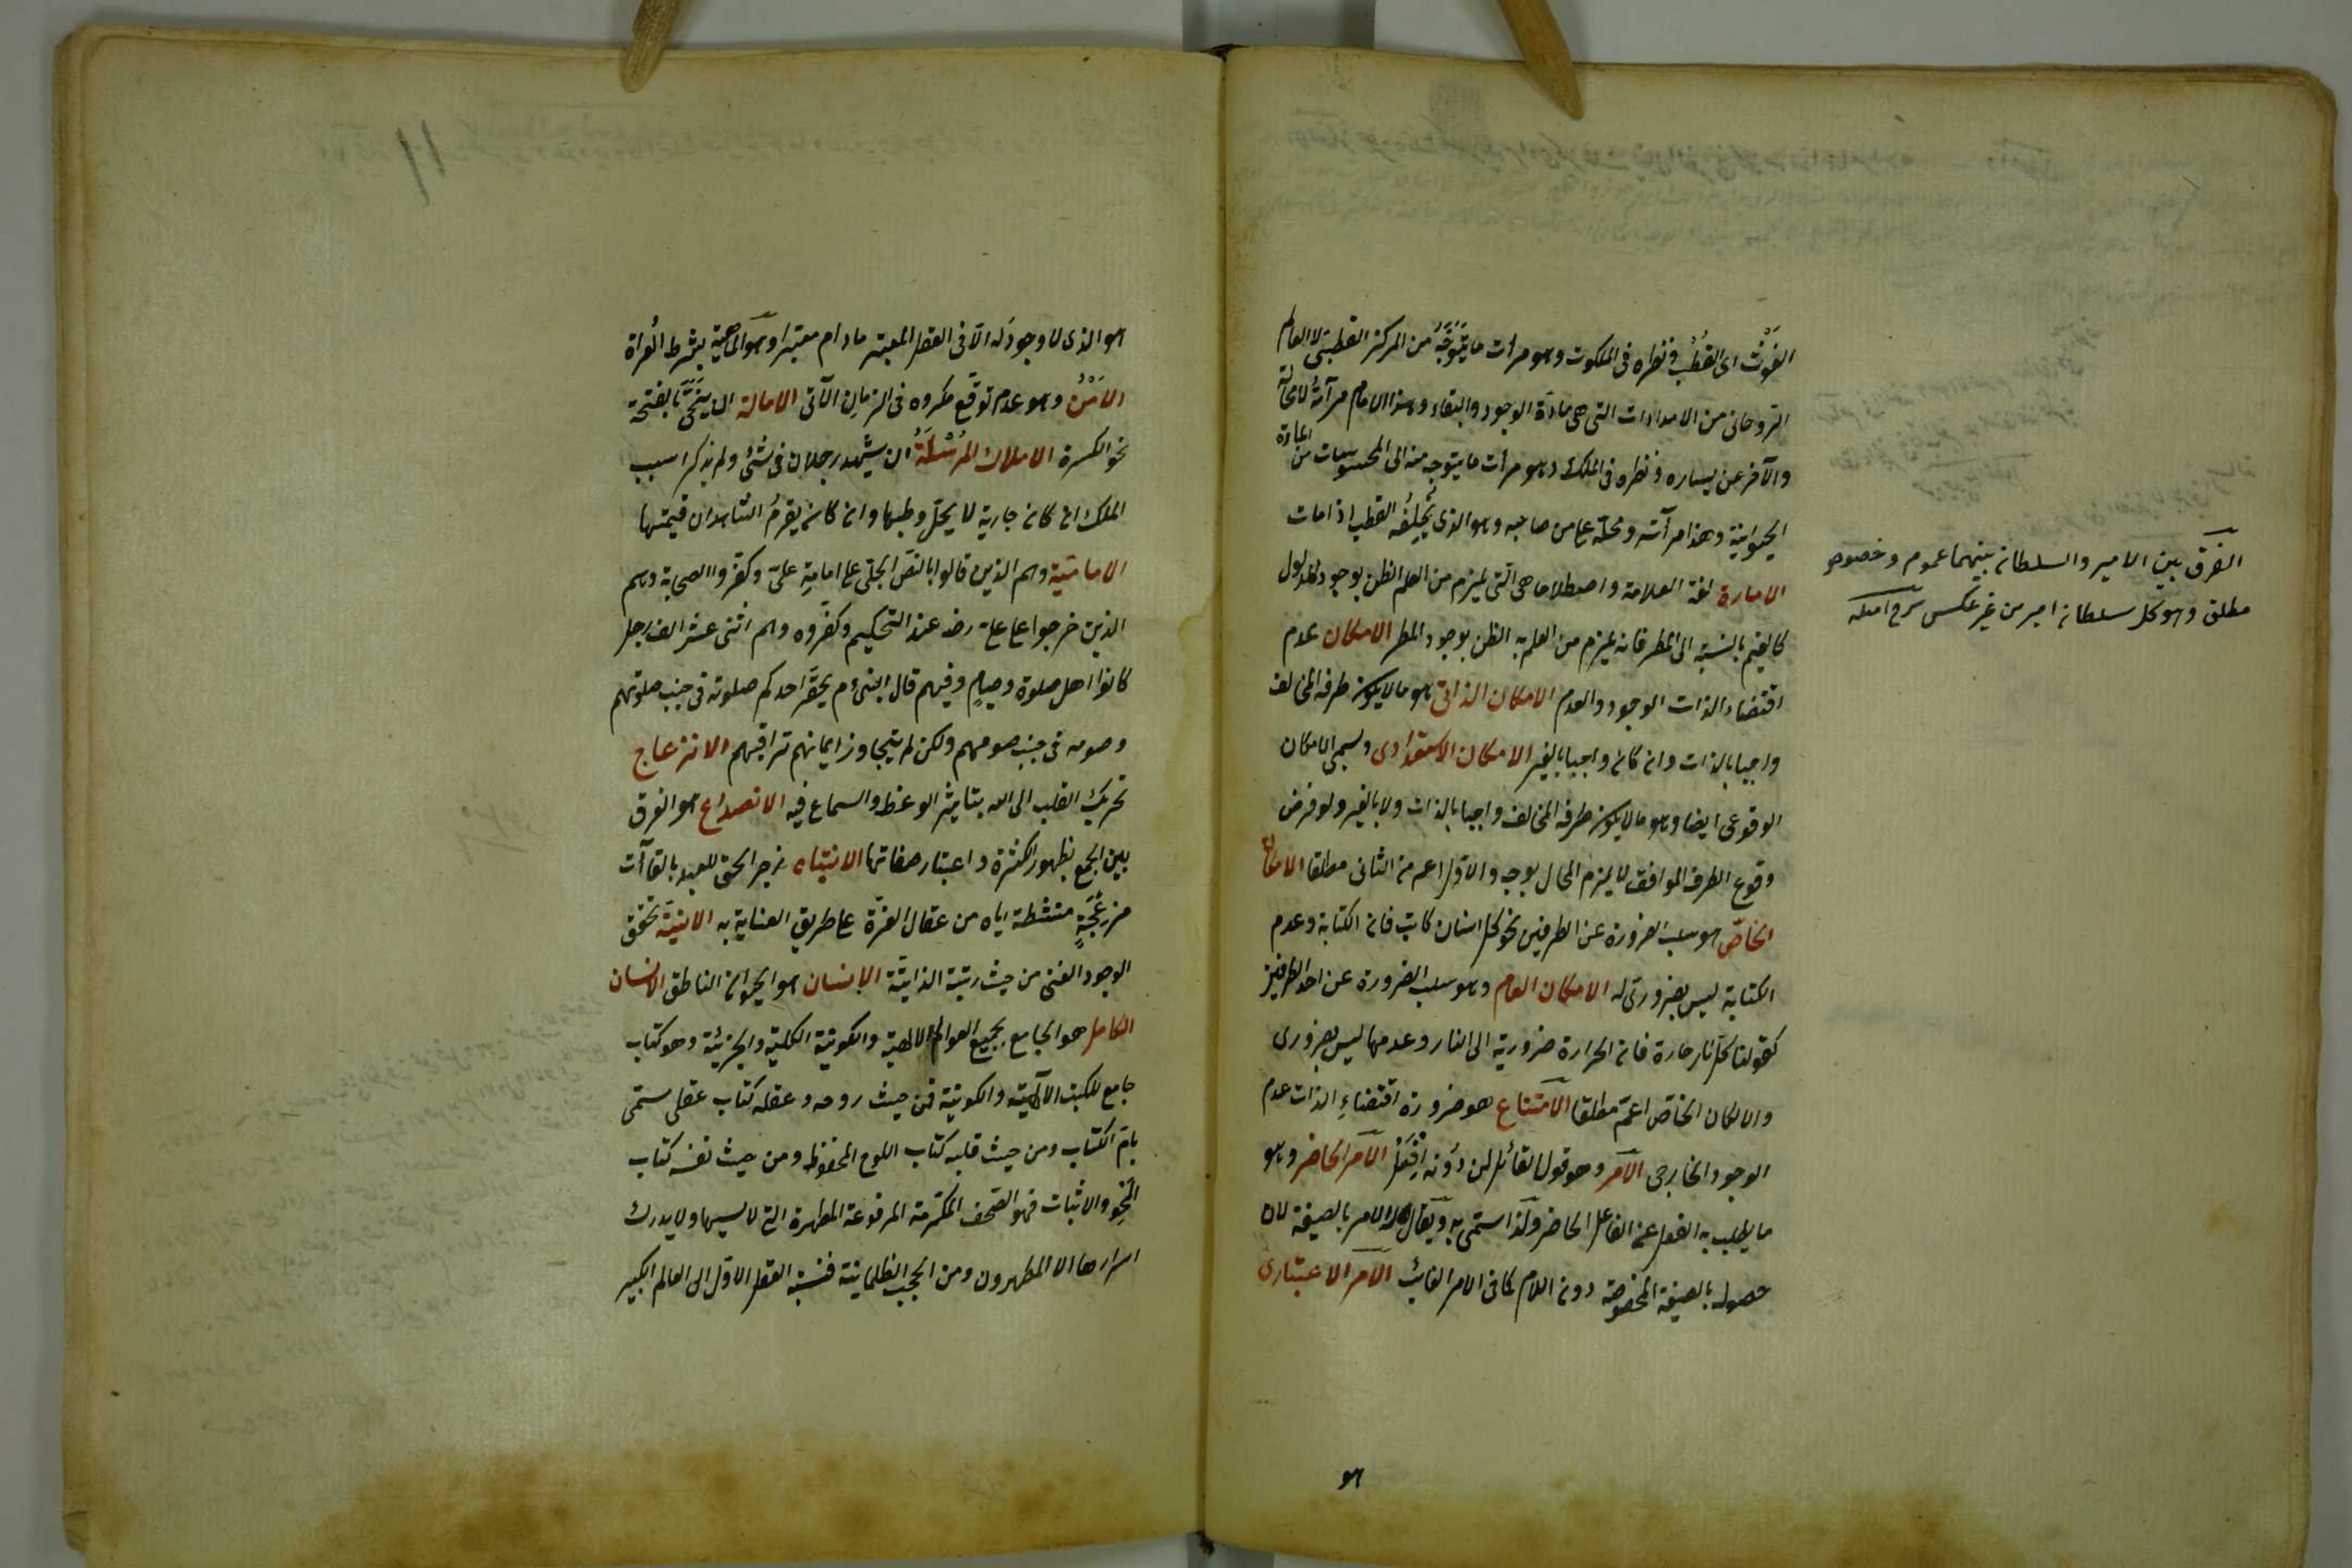 الغَوْث اى القُطْب ونظره فى الملكوت وهو مرآت ما يَتَوَجَّهُ من المركز القطبىّ الى العالم
الروحانى من الامدادات التى هى مادّة الوجود والبقاء وهذا الامام مرآتُهُ لا محالة
والآخر عن يساره ونظره فى الملك وهو مرآت ما يتوجه منه الى المحسوسات من المادّة
الحيوانيّة وهذا مرآته ومحلّه وهو اعلى من صاحبه وهو الذى يُخْلِفُ القطب اذا مات
الامارة لغة العلامة واصطلاحا هى الّتى يلزم من العلم الظن بوجود المدلول
كالغيم بالنسبة الى المطر فانه يلزم من العلم به الظن بوجود المطر الامكان عدم
اقتضاء الذات الوجود والعدم الامكان الذاتى هو ما لا يكون طرفه المخالف
واجبا بالذات وان كان واجبا بالغير الامكان الاستعدادى ويسمى الامكان
الوقوعى ايضا وهو ما لا يكون طرفه المخالف واجبا بالذات ولا بالغير ولو فرض
وقوع الطرف الموافق لا يلزم المحال بوجه والاوّل اعم من الثانى مطلقا الامكان
الخاصّ هو سلب الضرورة عن الطرفين نحو كل انسان كاتب فان الكتابة وعدم
الكتابة ليس بضرورىّ له الامكان العام وهو سلب الضرورة عن احد الطرفين
كقولنا كلّ نار حارة فان الحرارة ضرورية الى النار وعدمها ليس بضرورى
والا لكان الخاصّ اعمّ مطلقا الامتناع هو ضرورة اقتضاءِ الذات عدم
الوجود الخارجى الامر وهو قول القائل لمن دُونه اِفْعَلْ الامر الحاضر وهو
ما يطلب به الفعل عن الفاعل الحاضر ولذا سمّى به ويقال له الامر بالصيغة لان
حصوله بالصيغة المخصوصة دون اللام كما فى الامر الغائب الامر الاعتبارى
هو
الفرق بين الامير والسلطان بينهما عموم وخصوص
مطلق وهو كل سلطان امير من غير عكس
١١
هو الذى لا وجود له الّا فى العقل المعتبر ما دام معتبرا وهو الماهيّة بشرط العراة
الاَمْنُ وهو عدم توقّع مكروه فى الزمان الآتى الامالة ان ينحّى بالفتحة
نحو الكسرة الاملاك المُرْسَلَةُ ان يشهد رجلان فى شئ ولم يذكرا سبب
الملك ان كان جارية لا يحلّ وطيها وان كان يغرم الشاهدان قيمتها
الاماميّة وهم الذين قالوا بالنصّ الجلى على امامةِ علىّ وكفروا الصحابة وهم
الذين خرجوا على علىّ رضـ عند التحكيم وكفّروه وهم اثنى عشر الف رجل
كانوا اهل صلوة وصيام وفيهم قال النبى م يحقّر احدكم صلوته فى جنب صلوتهم
وصومه فى جنب صومهم ولكن لم يتجاوز ايمانهم تراقيهم الانزعاج
تحريك القلب الى الله بتاثير الوعظ والسماع فيه الانصداع هو الفرق
بين الجمع بظهور الكثرة واعتبار صفاتها الانتباه زجر الحق للعبد بالقاآت
مزعجةٍ منشّطة اياه من عقال الغرّة على طريق العناية به الانيّة تحقق
الوجود العينى من حيث رتبته الذاتيّة الانسان هو الحيوان الناطق الانسان
الكامل هو الجامع لجميع العوالم الالهية والكونيّة الكليّة والجزئيّة وهو كتاب
جامع للكتب الالهيّة والكونيّة فمن حيث روحه وعقله كتاب عقلى سمّى
بامّ الكتاب ومن حيث قلبه كتاب اللوح المحفوظ ومن حيث نفسه كتاب
المحْوِ والاثبات فهو الصحف المكرّمة المرفوعة المطهرة التى لا يمسها ولا يدرك
اسرارها الا المطهرون ومن الحجب الظلمانيّة فنسبة العقل الاوّل الى العالم الكبير